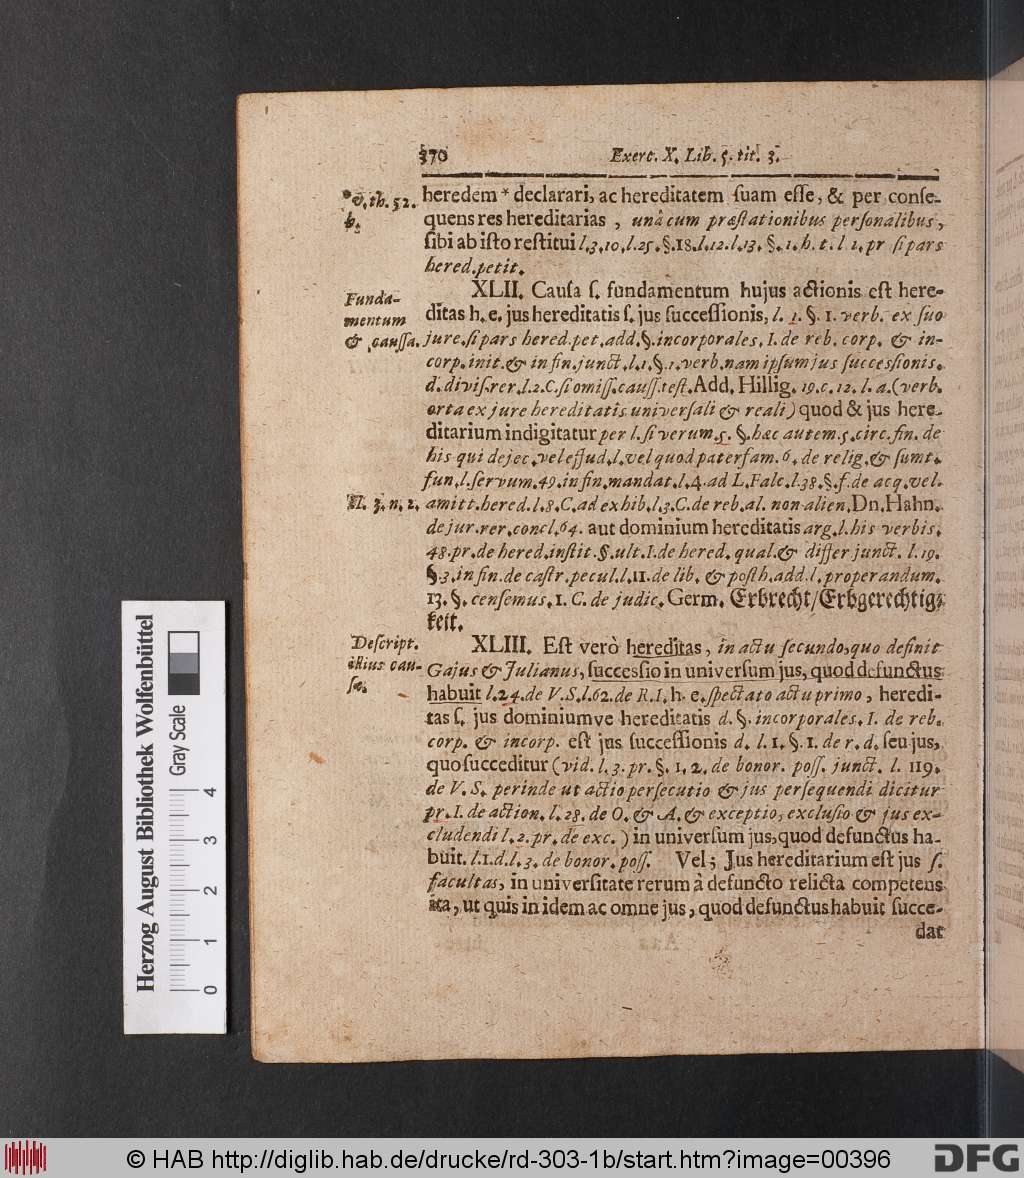 370 Exerc. X. Lib. 5. tit. 3.
* v. th. 52.
b.
heredem * declarari, ac hereditatem suam esse, & per conse-
quens res hereditarias , unà cum præstationibus personalibus,
sibi ab isto restitui l. 3. 10. l. 25. §. 18. l. 12. l. 13. §. 1. h. t. l. 1. pr si pars
hered. petit.
Funda-
mentum
& caussa.
XLII. Causa s. fundamentum hujus actionis est here-
ditas h. e. jus hereditatis s. jus successionis, l. 1. §. 1. verb. ex suo
jure. si pars hered. pet. add. §. incorporales. I. de reb. corp. & in-
corp. init. & in fin. junct. l. 1. §. 1. verb. nam ipsum jus successionis.
d. divis. rer. l. 2. C. si omiss. causs. test. Add. Hillig. 19. c. 12. l. a. (verb.
orta ex jure hereditatis universali & reali) quod & jus here-
ditarium indigitatur per l. si verum. 5. §. hæc autem. 5. circ. fin. de
his qui dejec. vel effud. l. vel quod paterfam. 6. de relig. & sumt.
fun. l. servum. 49. in fin. mandat. l. 4. ad L. Falc. l. 38. §. f. de acq. vel.
H. 3. n. 2.
amitt. hered. l. 8. C. ad exhib. l. 3. C. de reb. al. non alien. Dn. Hahn.
de jur. rer. concl. 64. aut dominium hereditatis arg. l. his verbis.
48. pr. de hered. instit. §. ult. I. de hered. qual. & differ junct. l. 19.
§. 3. in fin. de castr. pecul. l. 11. de lib. & posth. add. l. properandum.
13. §. censemus. 1. C. de judic. Germ. Erbrecht/Erbgerechtig-
keit.
Descript.
illius cau-
sæ.
XLIII. Est verò hereditas, in actu secundo, quo definit
Gajus & Julianus, successio in universum jus, quod defunctus
habuit l. 24. de V. S. l. 62. de R. I. h. e. spectato actu primo, heredi-
tas s. jus dominiumve hereditatis d. §. incorporales. I. de reb.
corp. & incorp. est jus successionis d. l. 1. §. 1. de r. d. seu jus,
quo succeditur (vid. l. 3. pr. §. 1. 2. de bonor. poss. junct. l. 119.
de V. S. perinde ut actio persecutio & jus persequendi dicitur
pr. I. de action. l. 28. de O. & A. & exceptio, exclusio & jus ex-
cludendi l. 2. pr. de exc. ) in universum jus, quod defunctus ha-
buit. l. 1. d. l. 3. de bonor. poss. Vel; Jus hereditarium est jus s.
facultas, in universitate rerum à defuncto relicta competens
ita, ut quis in idem ac omne jus, quod defunctus habuit succe-
dat
Herzog August Bibliothek Wolfenbüttel
Gray Scale
0 1 2 3 4
© HAB http://diglib.hab.de/drucke/rd-303-1b/start.htm?image=00396
DFG